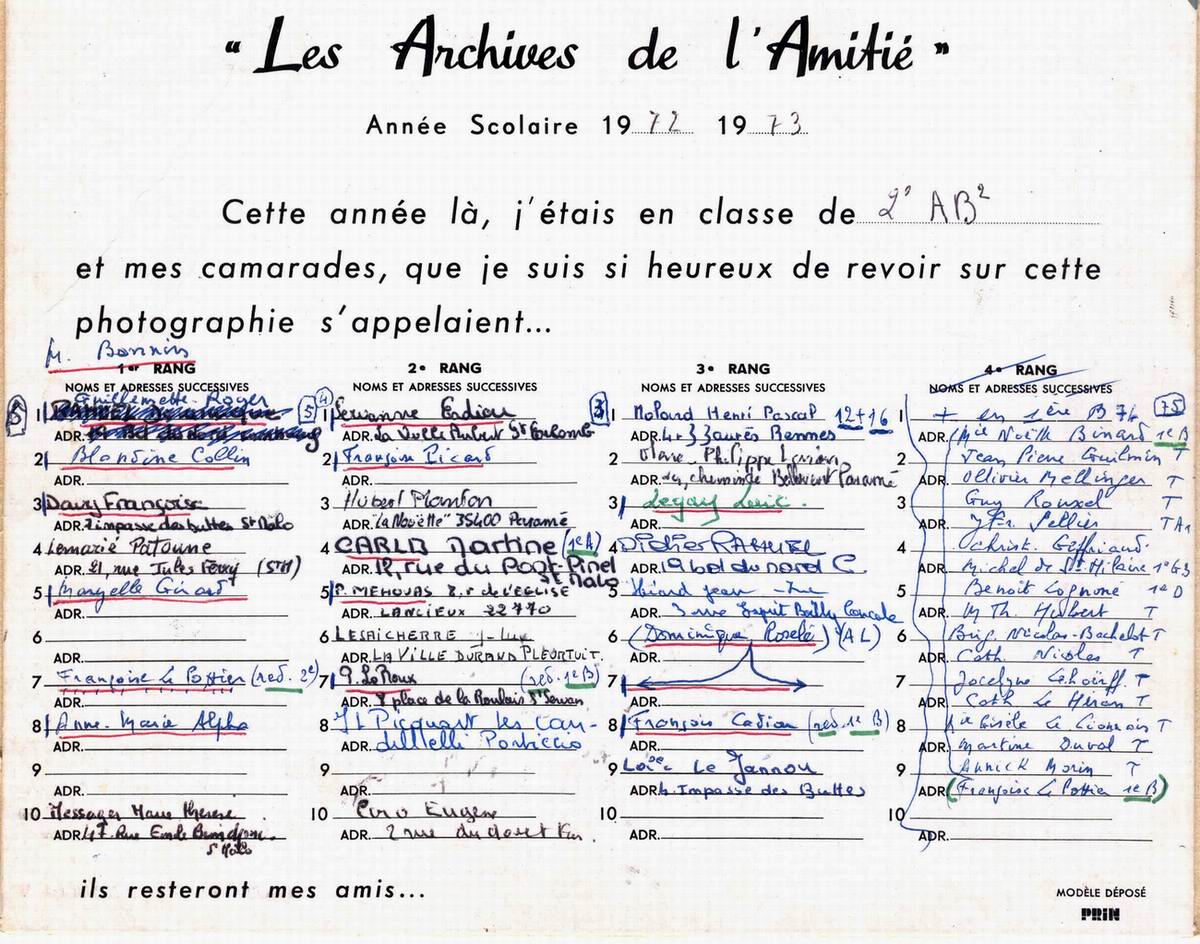 “ Les Archives de l'Amitié ”
Année Scolaire 1972 1973
Cette année là, j'étais en classe de 2° AB²
et mes camarades, que je suis si heureux de revoir sur cette
photographie s'appelaient...
M. Bonnin
1er RANG
NOMS ET ADRESSES SUCCESSIVES
Guillemette Roger
1
ADR.
2 Blandine Collin
ADR.
3 Davy Françoise
ADR. 2 impasse des buttes St Malo
4 Lemarié Patoune
ADR. 21, rue Jules Ferry (StM)
5 Maryelle Girard
ADR.
6
ADR.
7 Françoise Le Pottier (red. 2e)
ADR.
8 Anne-Marie Alpha
ADR.
9
ADR.
10 Messager Marie Therese
ADR. 47 Rue Emile
St Malo
5
5
4
2e RANG
NOMS ET ADRESSES SUCCESSIVES
1 Servanne
ADR. La Ville Aubert St Coulomb
2 Françoise Picard
ADR.
3 Hubert
ADR. "La Nouëtte" 35400 Paramé
4 Martine (1e A)
ADR. 12, rue du Pont-Pinel
St Malo
5 P. MEHOUAS 8, r de l'EGLISE
ADR. LANCIEUX 22770
6 LESAICHERRE J-Luc
ADR. LA VILLE DURAND PLEURTUIT.
7 G. Le Roux (red. 1e B)
ADR. 8 place de la Roulais St Servan
8 J L Picquart les
ADR. Porticcio
9
ADR.
10 Eugène
ADR. 2 rue du
3
3e RANG
NOMS ET ADRESSES SUCCESSIVES
1 Molard Henri Pascal 12+16
ADR. 4 r J Jaurès Rennes
2 Philippe
ADR. chemin de Bellevent Paramé
3 Legay Loïc.
ADR.
4 Didier
ADR. 19 bd du nord C
5 jean-luc
ADR. 3 rue Esprit Cancale
6 (Dominique Roselé) (AL)
ADR.
7
ADR.
8 François Cadiou (red. 1e B)
ADR.
9 Loïc Le Jannou
ADR. 4. Impasse des Buttes
10
ADR.
4e RANG
NOMS ET ADRESSES SUCCESSIVES
75
1 + en 1ère B 74
ADR. Mie Noëlle Binard 1e B
2 Jean Pierre Guilmin T
ADR. Ollivier Mellinger T
3 Guy Rouxel T
ADR. J Fr. Sellier T A1
4 Christ. Geffriaud.
ADR. Michel de St Hilaire 1e G3
5 Benoît Lognoné 1e D
ADR. M Th Hubert T
6 Brig. Nicolas-Bachelot T
ADR. Cath. Nicolas T
7 Jocelyne T
ADR. Cath Le Héran T
8 Mie Gisèle Le Lionnois T
ADR. Martine Duval T
9 Annick Morin T
ADR. (Françoise Le Pottier 1e B)
10
ADR.
ils resteront mes amis...
MODÈLE DÉPOSÉ
PRIN